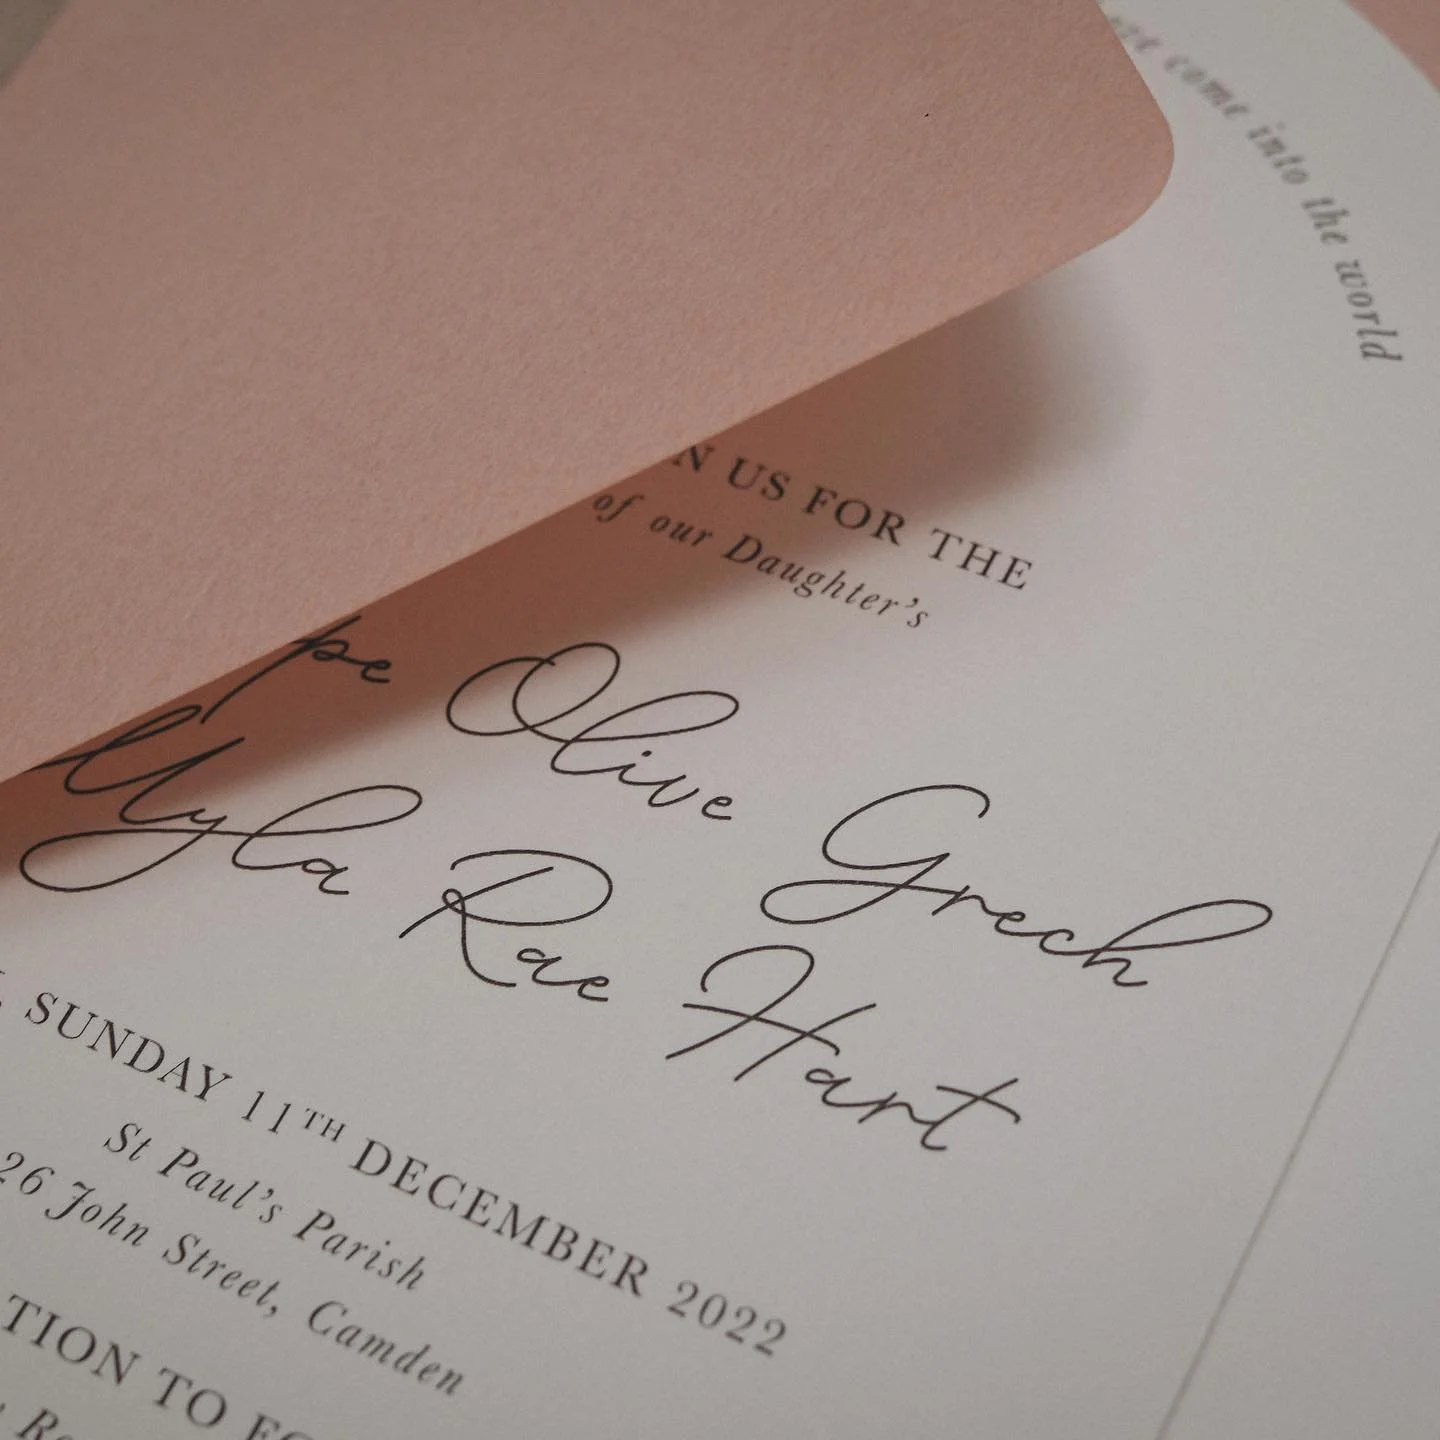 come into the world
US FOR THE
of our Daughter's
Olive Grech
Myla Rae Hart
SUNDAY 11TH DECEMBER 2022
St Paul's Parish
26 John Street, Camden
TION TO